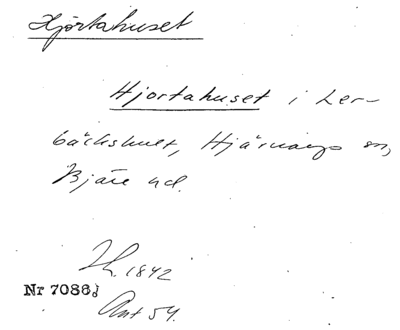 Hjörtahuset
Hjortahuset i Ler-
bäckshult, Hjärnarps sn,
Bjäre hd.
Lh. 1842
Nr 7086
Ant 54.